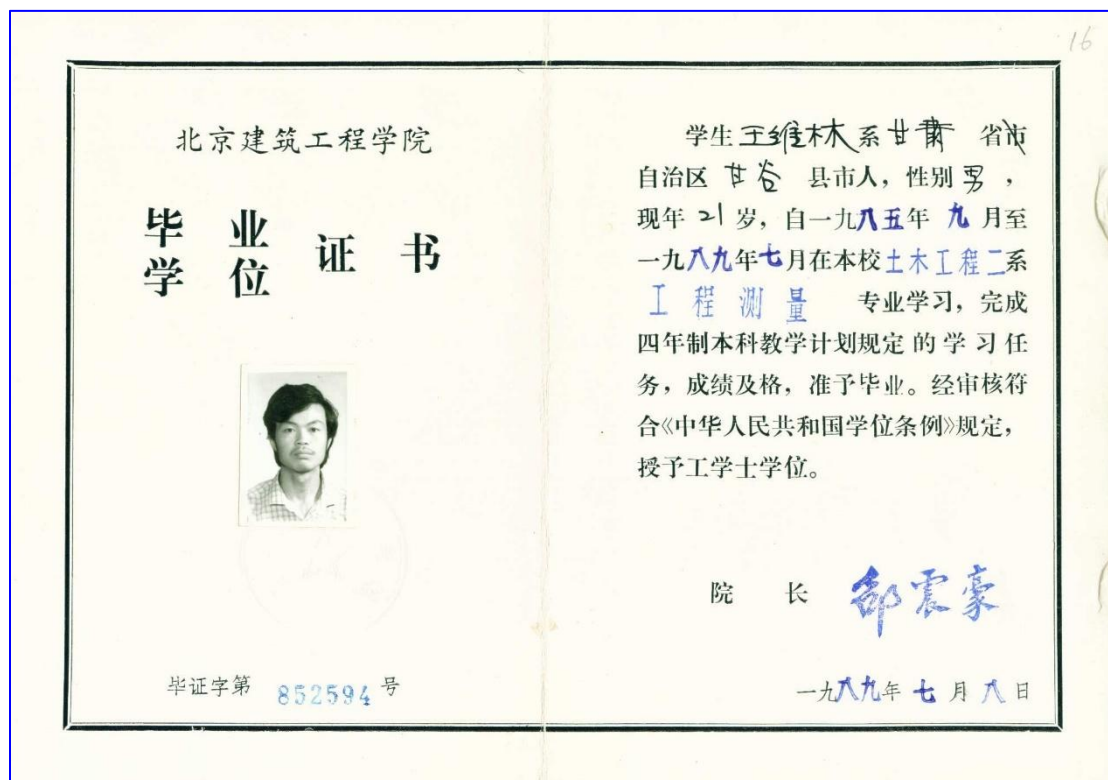 16
北京建筑工程学院
毕业
学位
证书
毕证字第 852594 号
学生王维林系甘肃 省市
自治区 甘谷 县市人，性别男，
现年21岁，自一九八五年 九月至
一九八九年七月在本校土木工程二系
工程测量 专业学习，完成
四年制本科教学计划规定的学习任
务，成绩及格，准予毕业。经审核符
合《中华人民共和国学位条例》规定，
授予工学士学位。
院 长 邵震豪
一九八九年七月八日